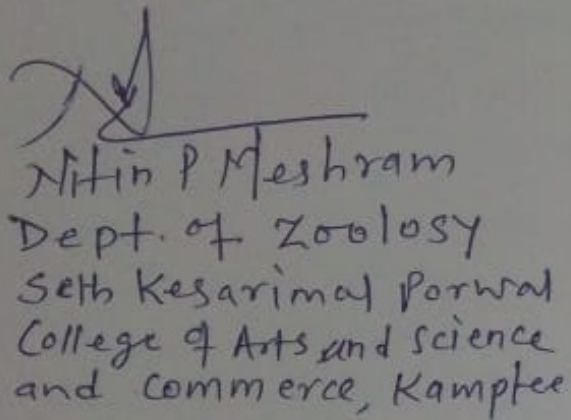 Nitin P Meshram
Dept. of Zoology
Seth Kesarimal Porwal
College of Arts and Science
and Commerce, Kamptee